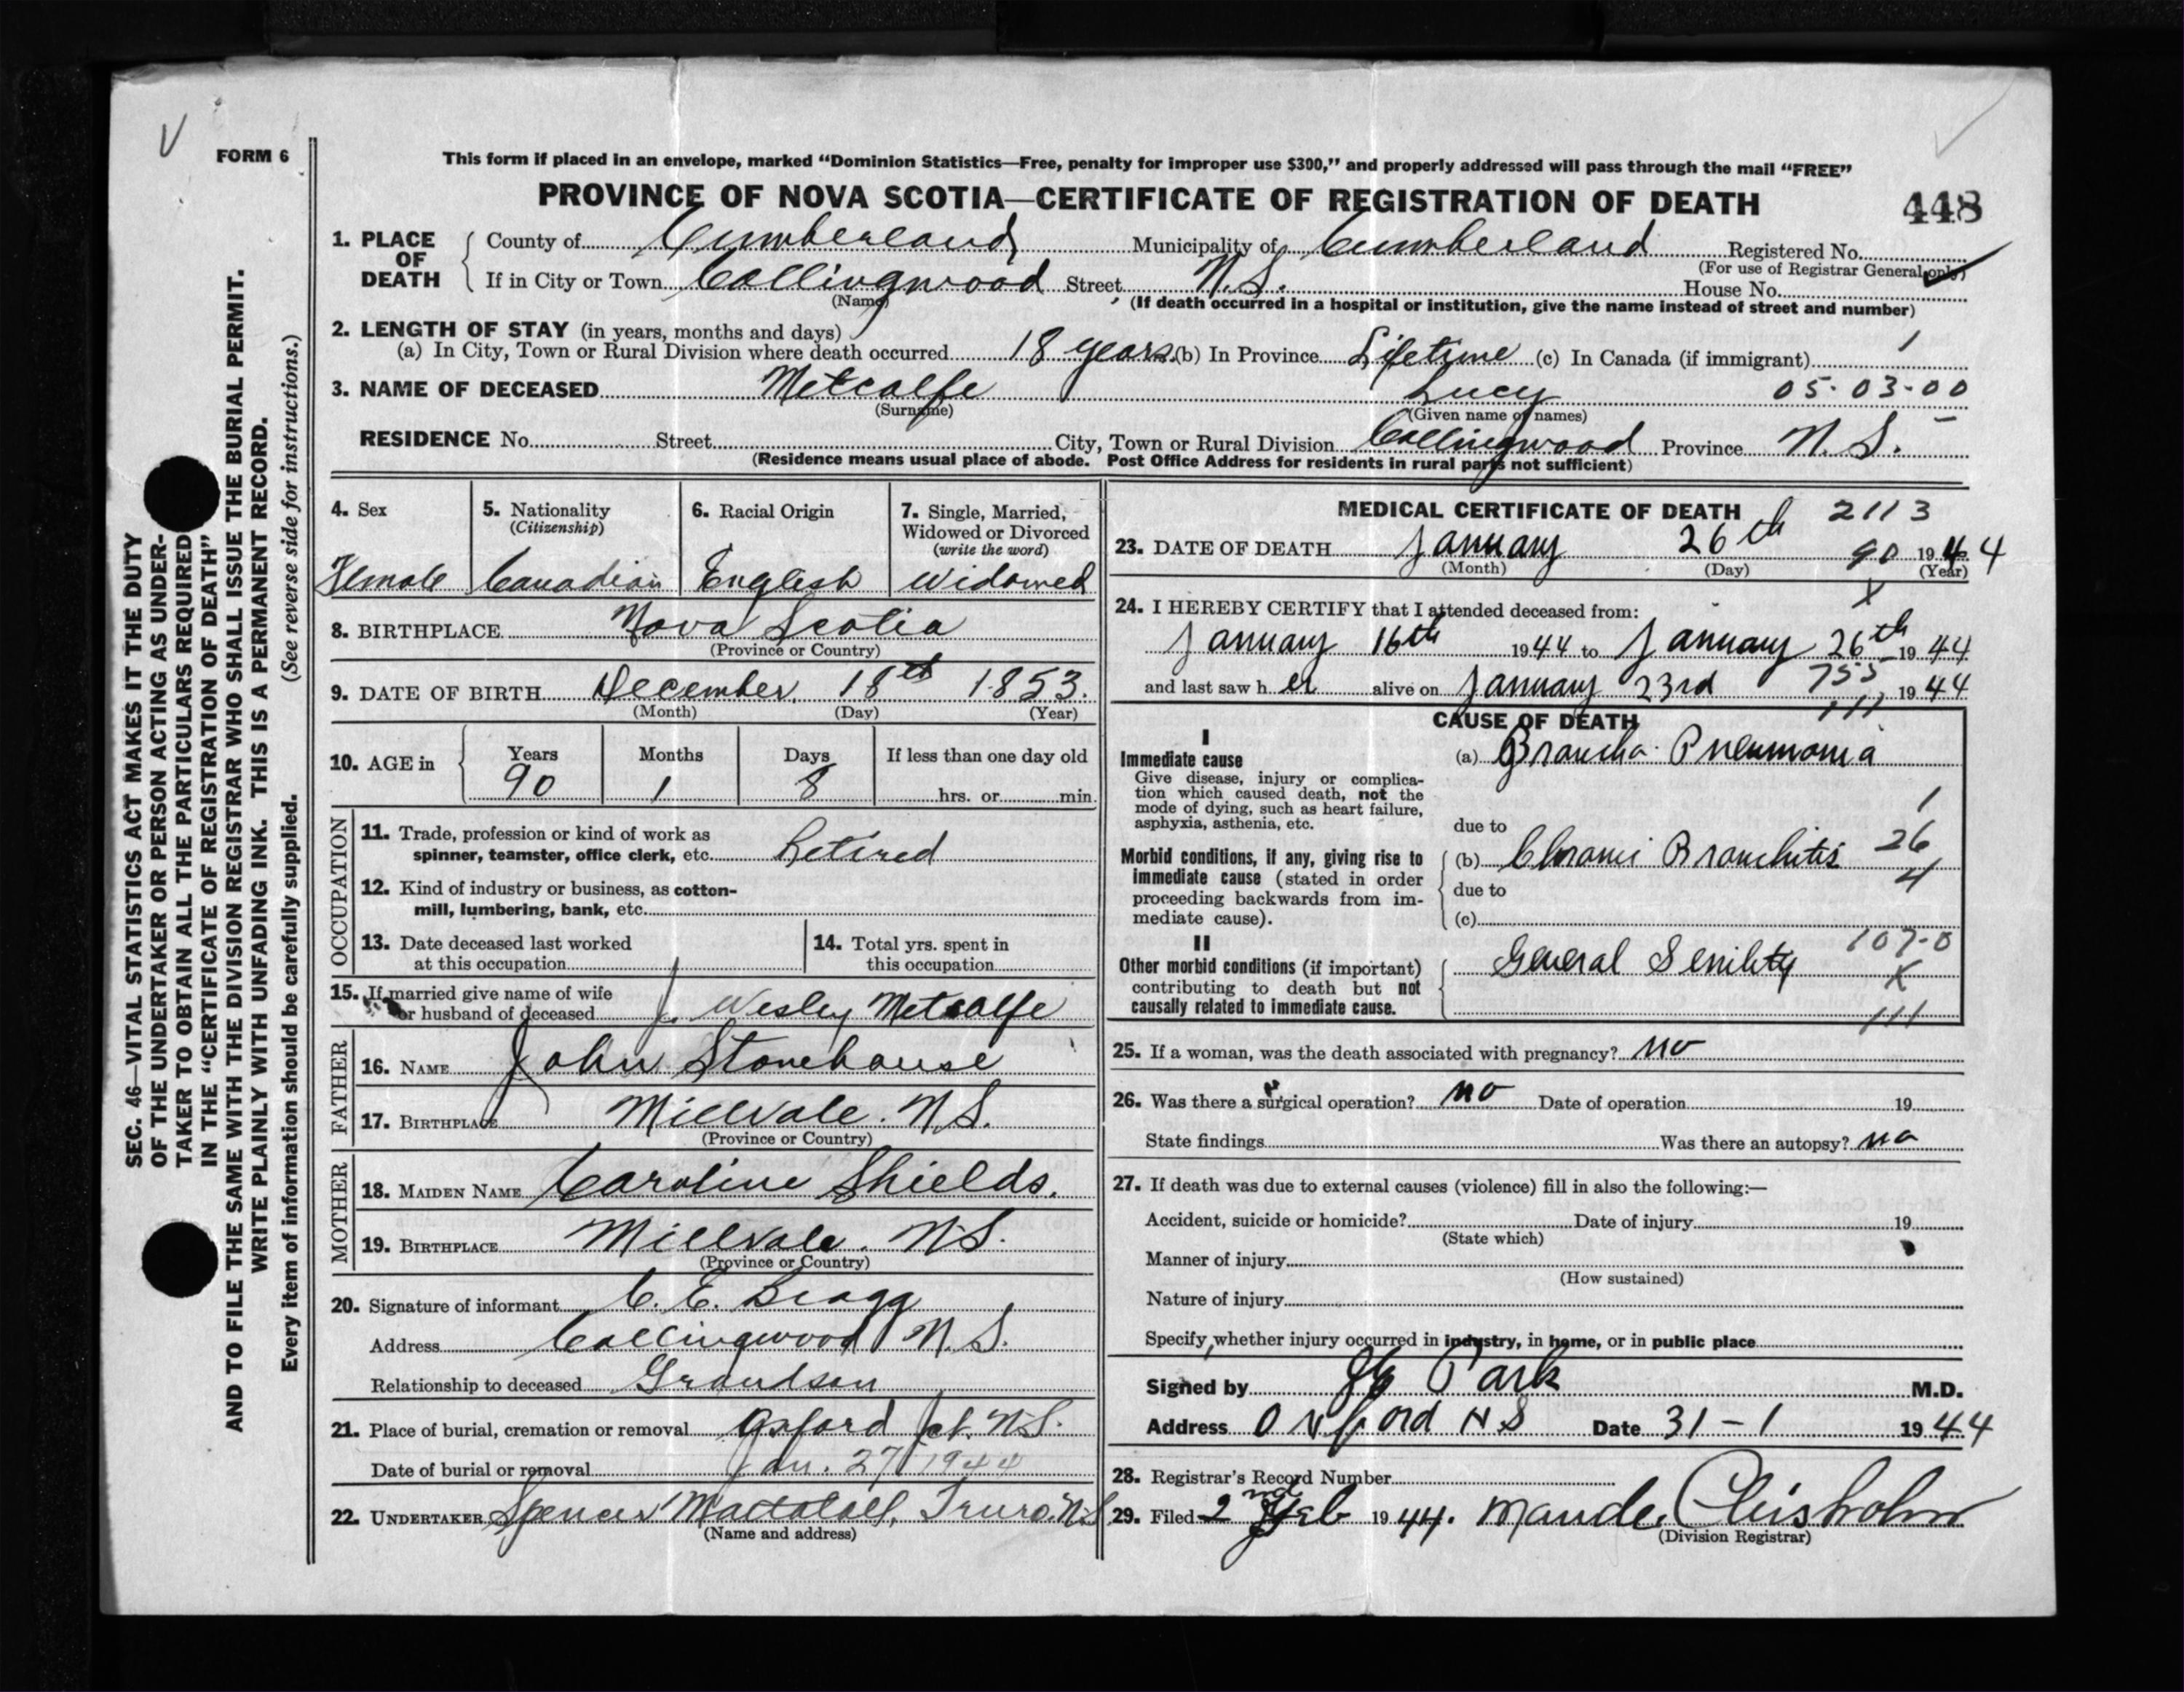 FORM 6
This form if placed in an envelope, marked “Dominion Statistics—Free, penalty for improper use $300,” and properly addressed will pass through the mail “FREE”
PROVINCE OF NOVA SCOTIA—CERTIFICATE OF REGISTRATION OF DEATH
448
1. PLACE OF DEATH
County of Cumberland Municipality of Cumberland Registered No.
(For use of Registrar General only)
If in City or Town Collingwood Street N.S. House No.
(Name) (If death occurred in a hospital or institution, give the name instead of street and number)
2. LENGTH OF STAY (in years, months and days)
(a) In City, Town or Rural Division where death occurred 18 years (b) In Province Lifetime (c) In Canada (if immigrant) 1
3. NAME OF DECEASED Metcalfe Lucy 05-03-00
(Surname) (Given name or names)
RESIDENCE No. Street City, Town or Rural Division Collingwood Province N.S.
(Residence means usual place of abode. Post Office Address for residents in rural parts not sufficient)
4. Sex
Female
5. Nationality
(Citizenship)
Canadian
6. Racial Origin
English
7. Single, Married, Widowed or Divorced
(write the word)
Widowed
8. BIRTHPLACE Nova Scotia
(Province or Country)
9. DATE OF BIRTH December 18th 1853.
(Month) (Day) (Year)
10. AGE in Years Months Days If less than one day old
90 1 8 hrs. or min.
OCCUPATION
11. Trade, profession or kind of work as
spinner, teamster, office clerk, etc. Retired
12. Kind of industry or business, as cotton-
mill, lumbering, bank, etc.
13. Date deceased last worked
at this occupation
14. Total yrs. spent in
this occupation
15. If married give name of wife
or husband of deceased J. Wesley Metcalfe
FATHER
16. NAME John Stonehouse
17. BIRTHPLACE Millvale. N.S.
(Province or Country)
MOTHER
18. MAIDEN NAME Caroline Shields.
19. BIRTHPLACE Millvale. N.S.
(Province or Country)
20. Signature of informant C. E. Bragg
Address Collingwood N.S.
Relationship to deceased Grandson
21. Place of burial, cremation or removal Oxford Jct. N.S.
Date of burial or removal Jan. 27 1944
22. UNDERTAKER Spencer Mattatall, Truro. N.S.
(Name and address)
MEDICAL CERTIFICATE OF DEATH 2113
23. DATE OF DEATH January 26th 90 1944
(Month) (Day) (Year)
X
24. I HEREBY CERTIFY that I attended deceased from:
January 16th 1944 to January 26th 1944
and last saw her alive on January 23rd 755 1944
111
CAUSE OF DEATH
I
Immediate cause
Give disease, injury or complica-
tion which caused death, not the
mode of dying, such as heart failure,
asphyxia, asthenia, etc.
(a) Broncho-Pneumonia
1
due to
26
Morbid conditions, if any, giving rise to
immediate cause (stated in order
proceeding backwards from im-
mediate cause).
(b) Chronic Bronchitis
4
due to
(c)
107-0
II
Other morbid conditions (if important)
contributing to death but not
causally related to immediate cause.
General Senility
X
111
25. If a woman, was the death associated with pregnancy? no
26. Was there a surgical operation? no Date of operation 19
State findings Was there an autopsy? no
27. If death was due to external causes (violence) fill in also the following:—
Accident, suicide or homicide? Date of injury 19
(State which)
Manner of injury
(How sustained)
Nature of injury
Specify whether injury occurred in industry, in home, or in public place
Signed by Park M.D.
Address Oxford NS Date 31-1 1944
28. Registrar's Record Number
29. Filed 2nd Feb 1944. Maude Chisholm
(Division Registrar)
SEC. 46—VITAL STATISTICS ACT MAKES IT THE DUTY
OF THE UNDERTAKER OR PERSON ACTING AS UNDER-
TAKER TO OBTAIN ALL THE PARTICULARS REQUIRED
IN THE “CERTIFICATE OF REGISTRATION OF DEATH”
AND TO FILE THE SAME WITH THE DIVISION REGISTRAR WHO SHALL ISSUE THE BURIAL PERMIT.
WRITE PLAINLY WITH UNFADING INK. THIS IS A PERMANENT RECORD.
Every item of information should be carefully supplied. (See reverse side for instructions.)